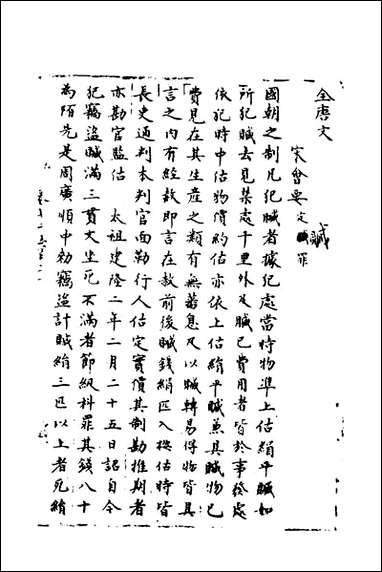 全唐文
贓
宋會要 定贓罪
國朝之制凡犯贓者據犯處當時物準上估絹平贓如
所犯贓去見禁處千里外及贓已費用者皆於事發處
依犯時中估物價約估亦依上估絹平贓兼其贓物已
費見在其生產之類有無蕃息及以贓轉易得物皆具
言之內有經赦即言在赦前後贓錢絹匹入投估時皆
長史通判本判官面勒行人估定實價其制勘推期者
亦勘官監估 太祖建隆二年二月二十五日詔自今
犯竊盜贓滿三貫文坐死不滿者節級科罪其錢八十
為陌先是周廣順中勑竊盜計贓絹三匹以上者死絹